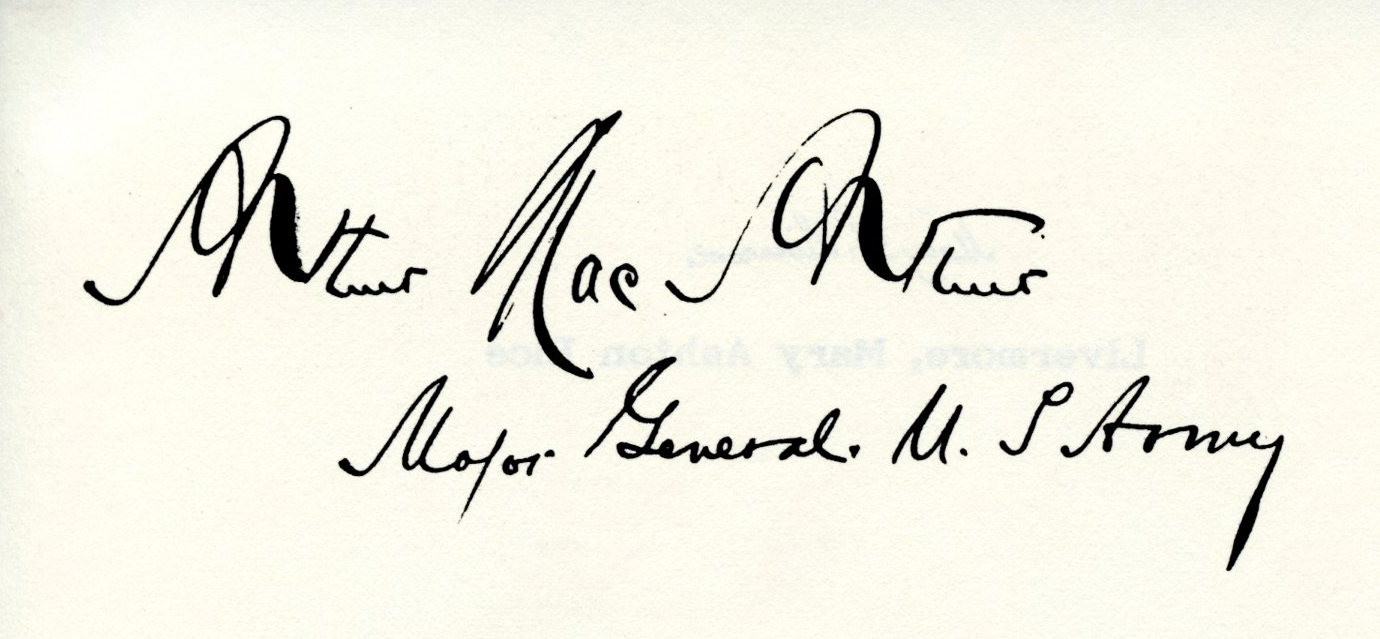 Arthur MacArthur
Major General. U. S Army
Livermore, Mary Ashton Rice